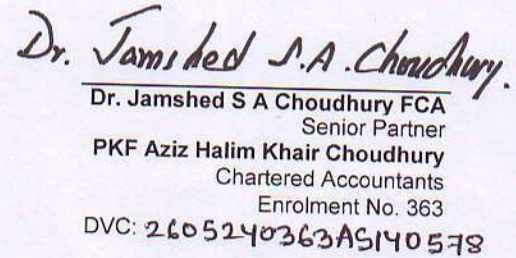 Dr. Jamshed S.A. Choudhury.
Dr. Jamshed S A Choudhury FCA
Senior Partner
PKF Aziz Halim Khair Choudhury
Chartered Accountants
Enrolment No. 363
DVC: 2605240363AS140578